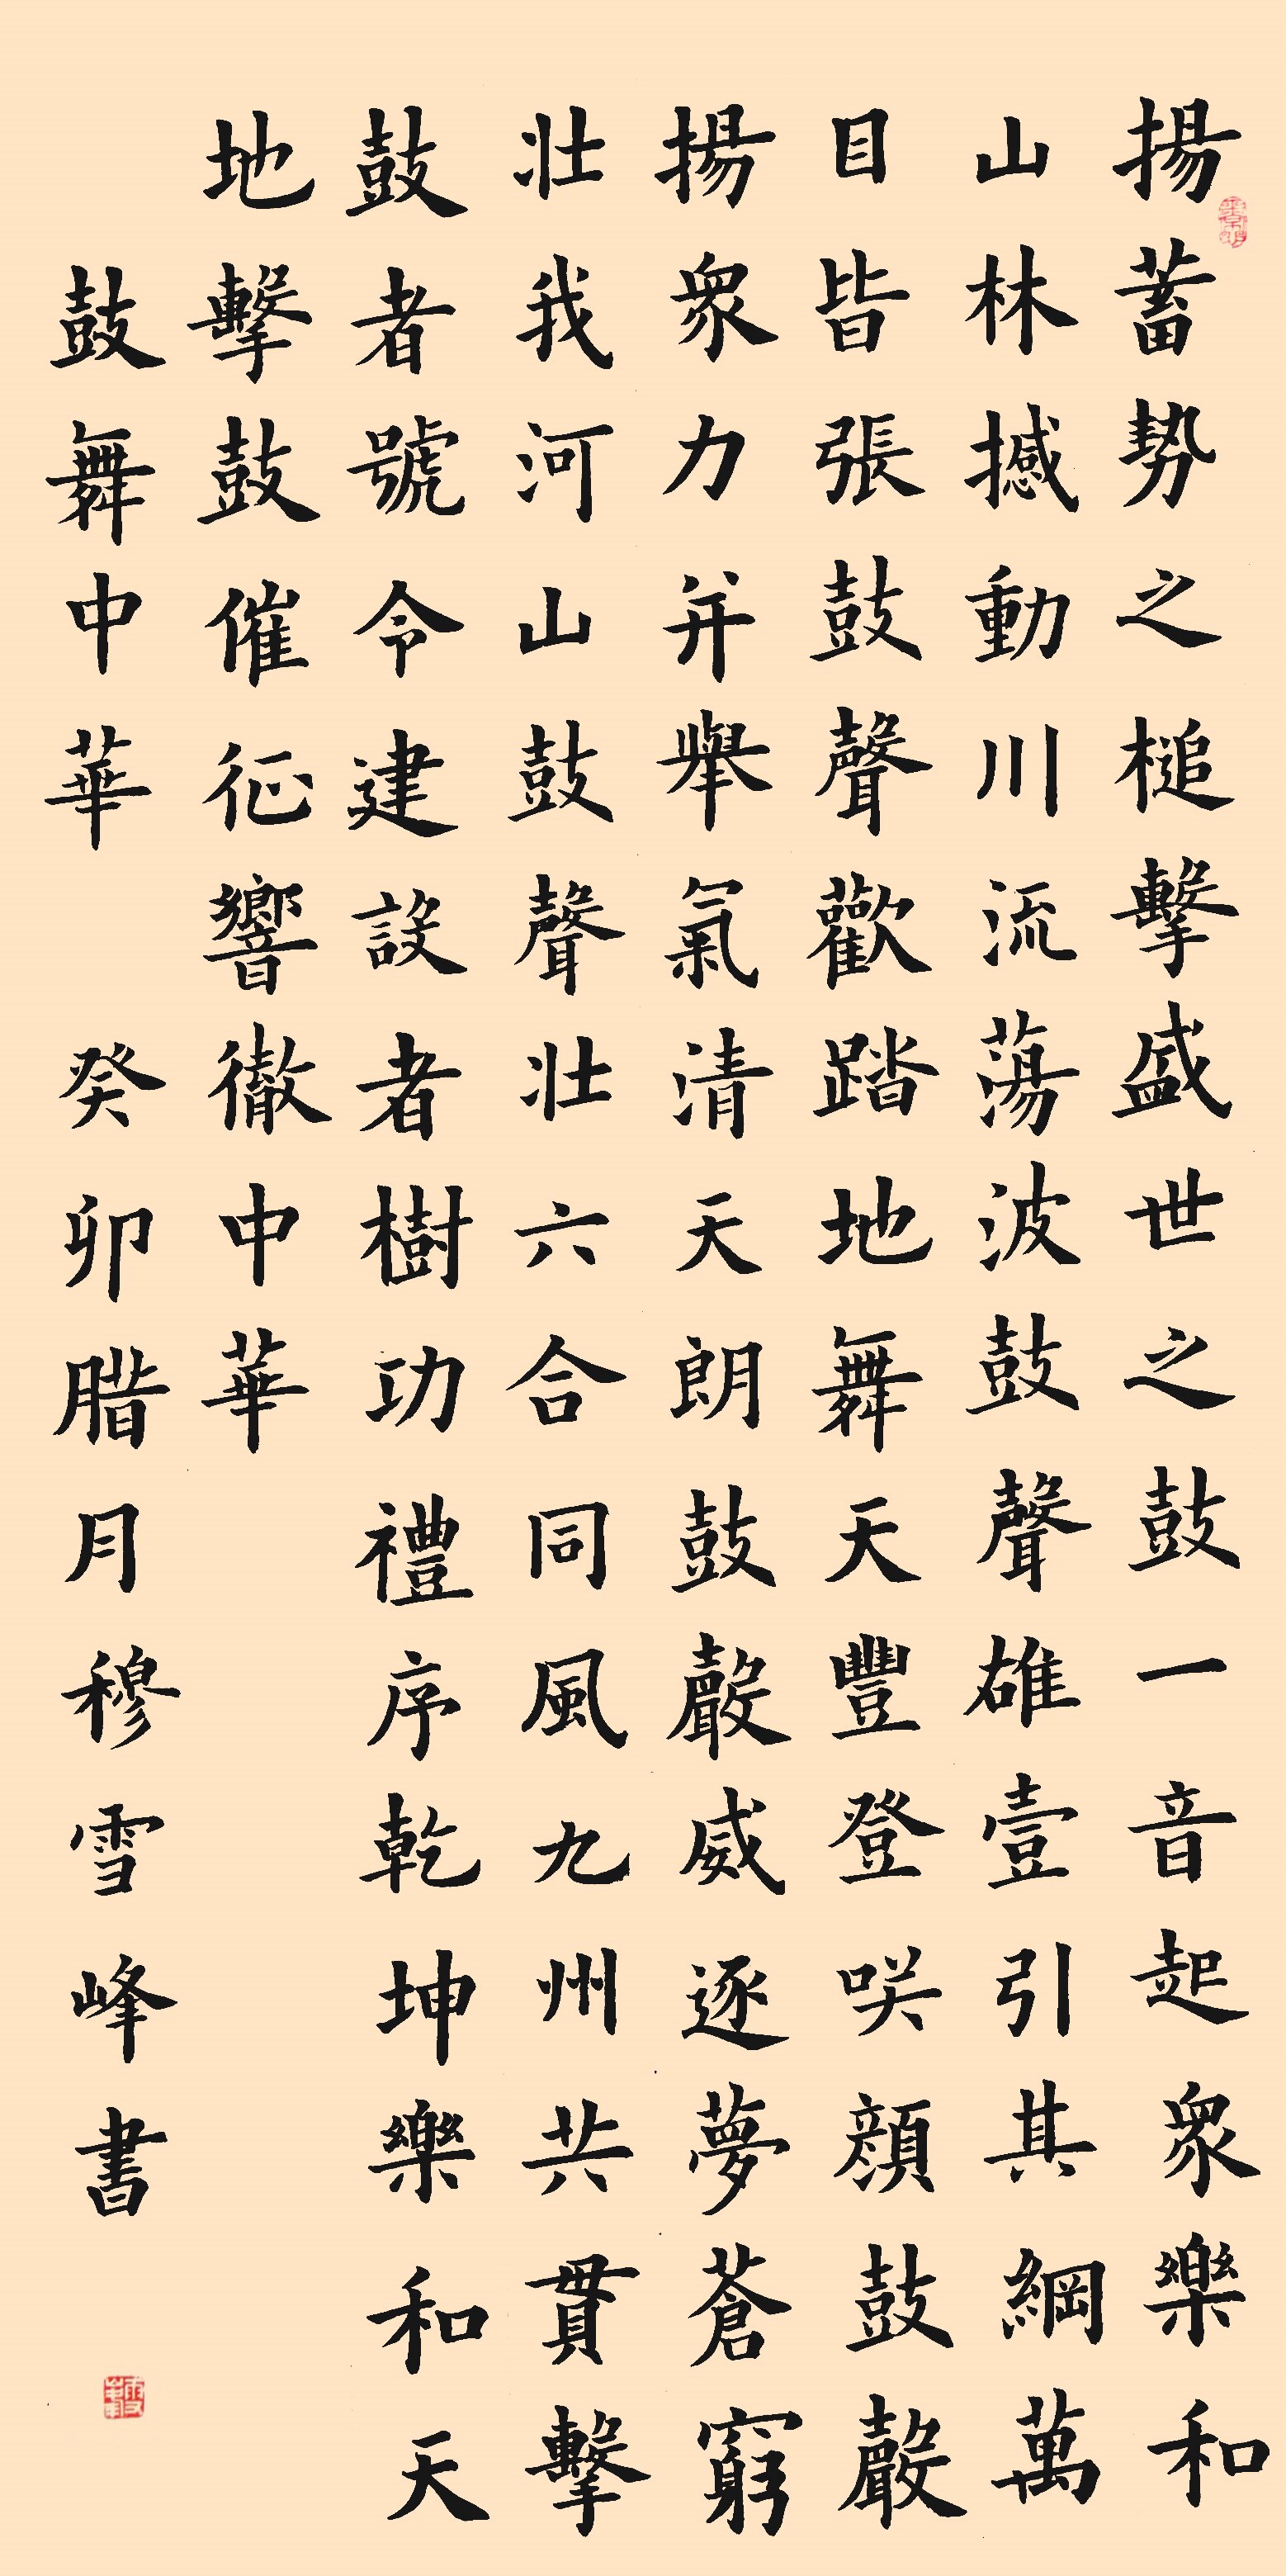 揚蓄勢之槌擊盛世之鼓一音起衆樂和
山林撼動川流蕩波鼓聲雄壹引其綱萬
目皆張鼓聲歡踏地舞天豐登咲顏鼓聲
揚衆力并舉氣清天朗鼓聲威逐夢蒼窮
壯我河山鼓聲壯六合同風九州共貫擊
鼓者號令建設者樹功禮序乾坤樂和天
地擊鼓催征響徹中華
鼓舞中華 癸卯腊月穆雪峰書